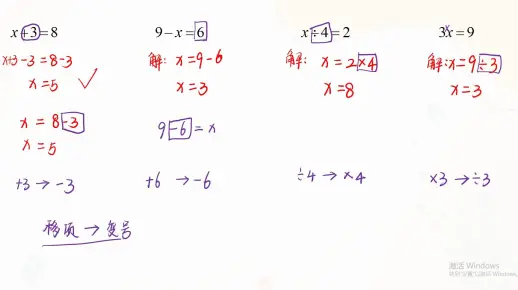 x+3=8
x+3-3=8-3
x=5
x=8-3
x=5
+3→-3
9-x=6
解: x=9-6
x=3
9-6=x
+6→-6
x÷4=2
解: x=2×4
x=8
÷4→×4
3x=9
解: x=9÷3
x=3
×3→÷3
移项→变号
激活 Windows